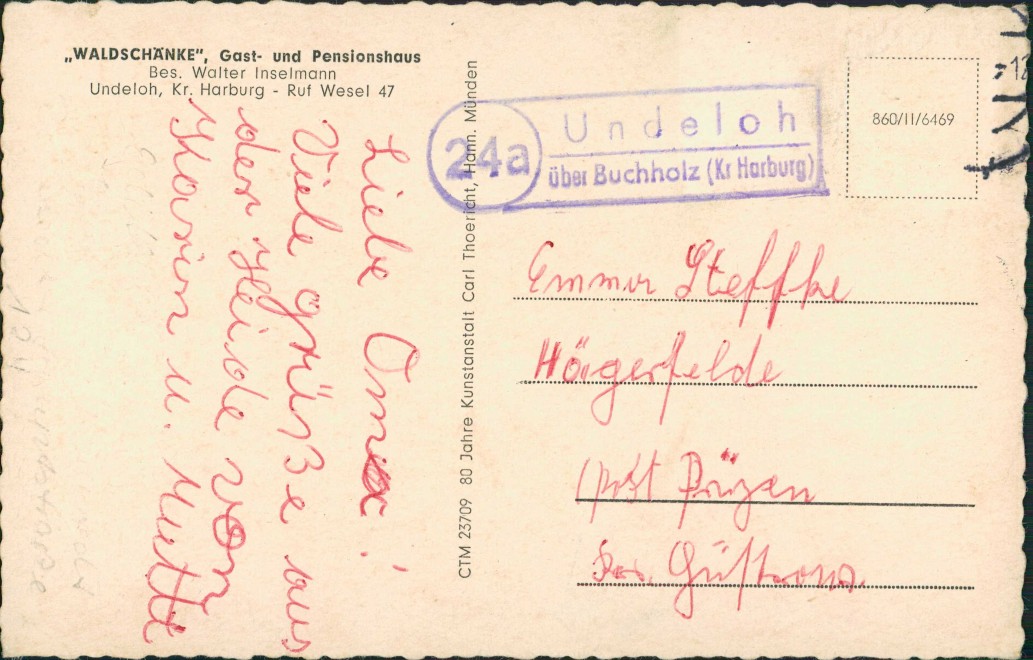 „WALDSCHÄNKE”, Gast- und Pensionshaus
Bes. Walter Inselmann
Undeloh, Kr. Harburg - Ruf Wesel 47
Liebe Oma!
Viele Grüße aus
der Heide von
Karin u. Mutti
CTM 23709 80 Jahre Kunstanstalt Carl Thoericht, Hann. Münden
24a
Undeloh
über Buchholz (Kr Harburg)
860/II/6469
Emma Steffke
Hägerfelde
Post Prüzen
Krs. Güstrow.